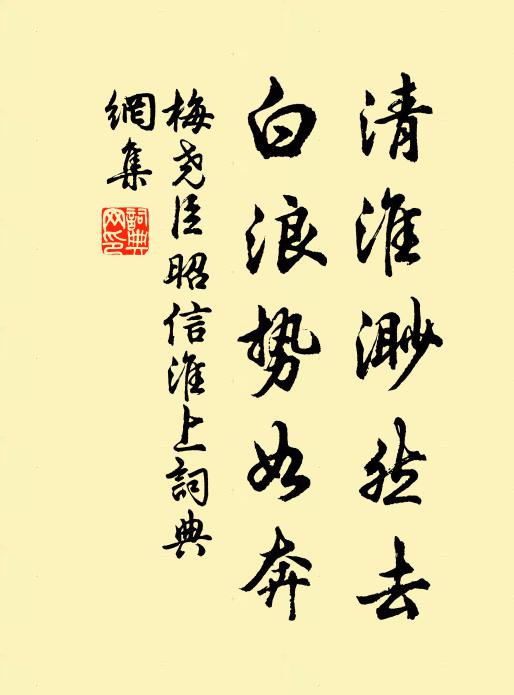 清淮渺然去
白浪势如奔
梅尧臣昭信淮上詞典
網集
詞典
网印